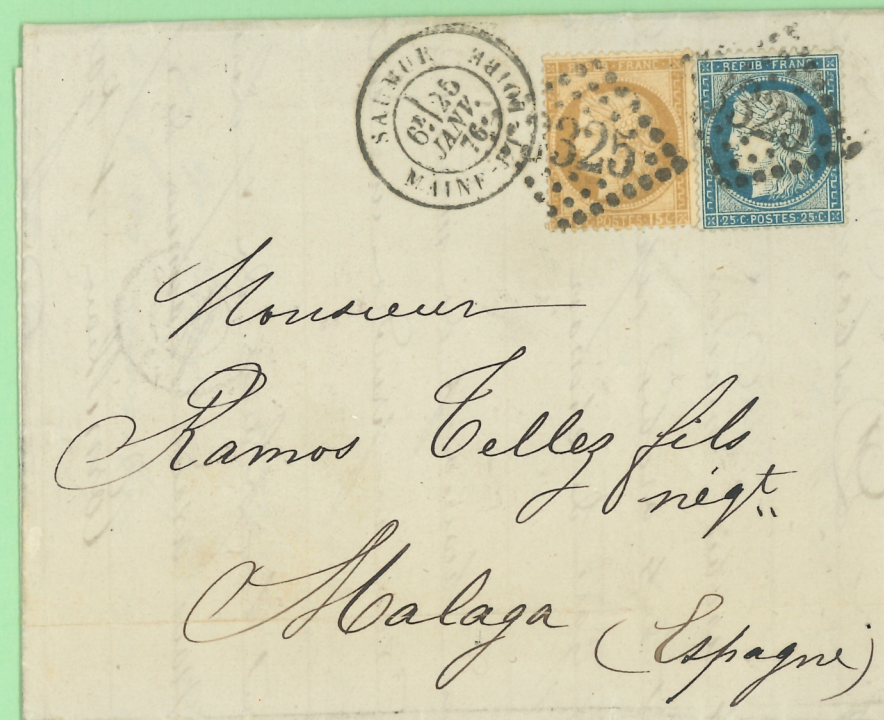 SAUMUR
6E
25
JANV.
76
MAINE-ET-LOIRE
FRANC
325
POSTES 15 C
REPUB FRANC
325
25 C POSTES 25 C
Monsieur
Ramos Tellez fils
négt
Malaga
(Espagne)